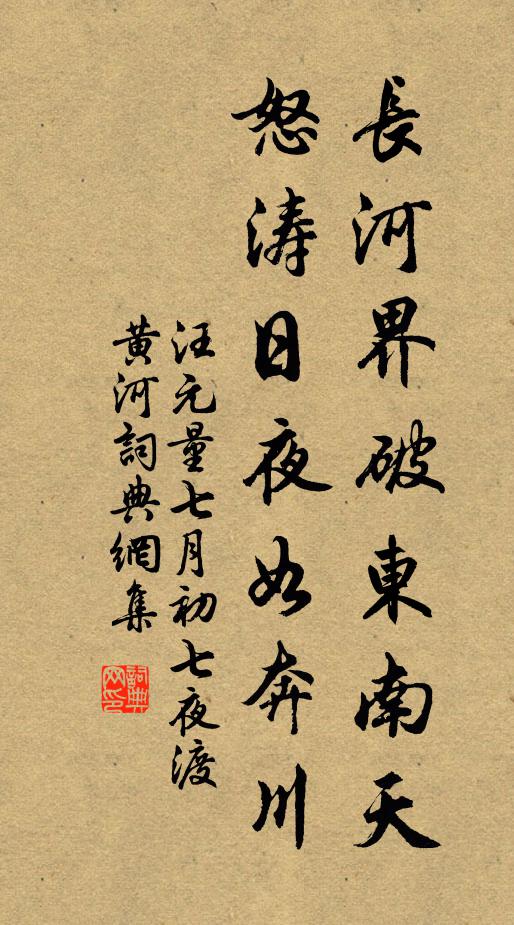 長河界破東南天
怒涛日夜如奔川
汪元量七月初七夜渡
黄河詞典網集
詞典
网印